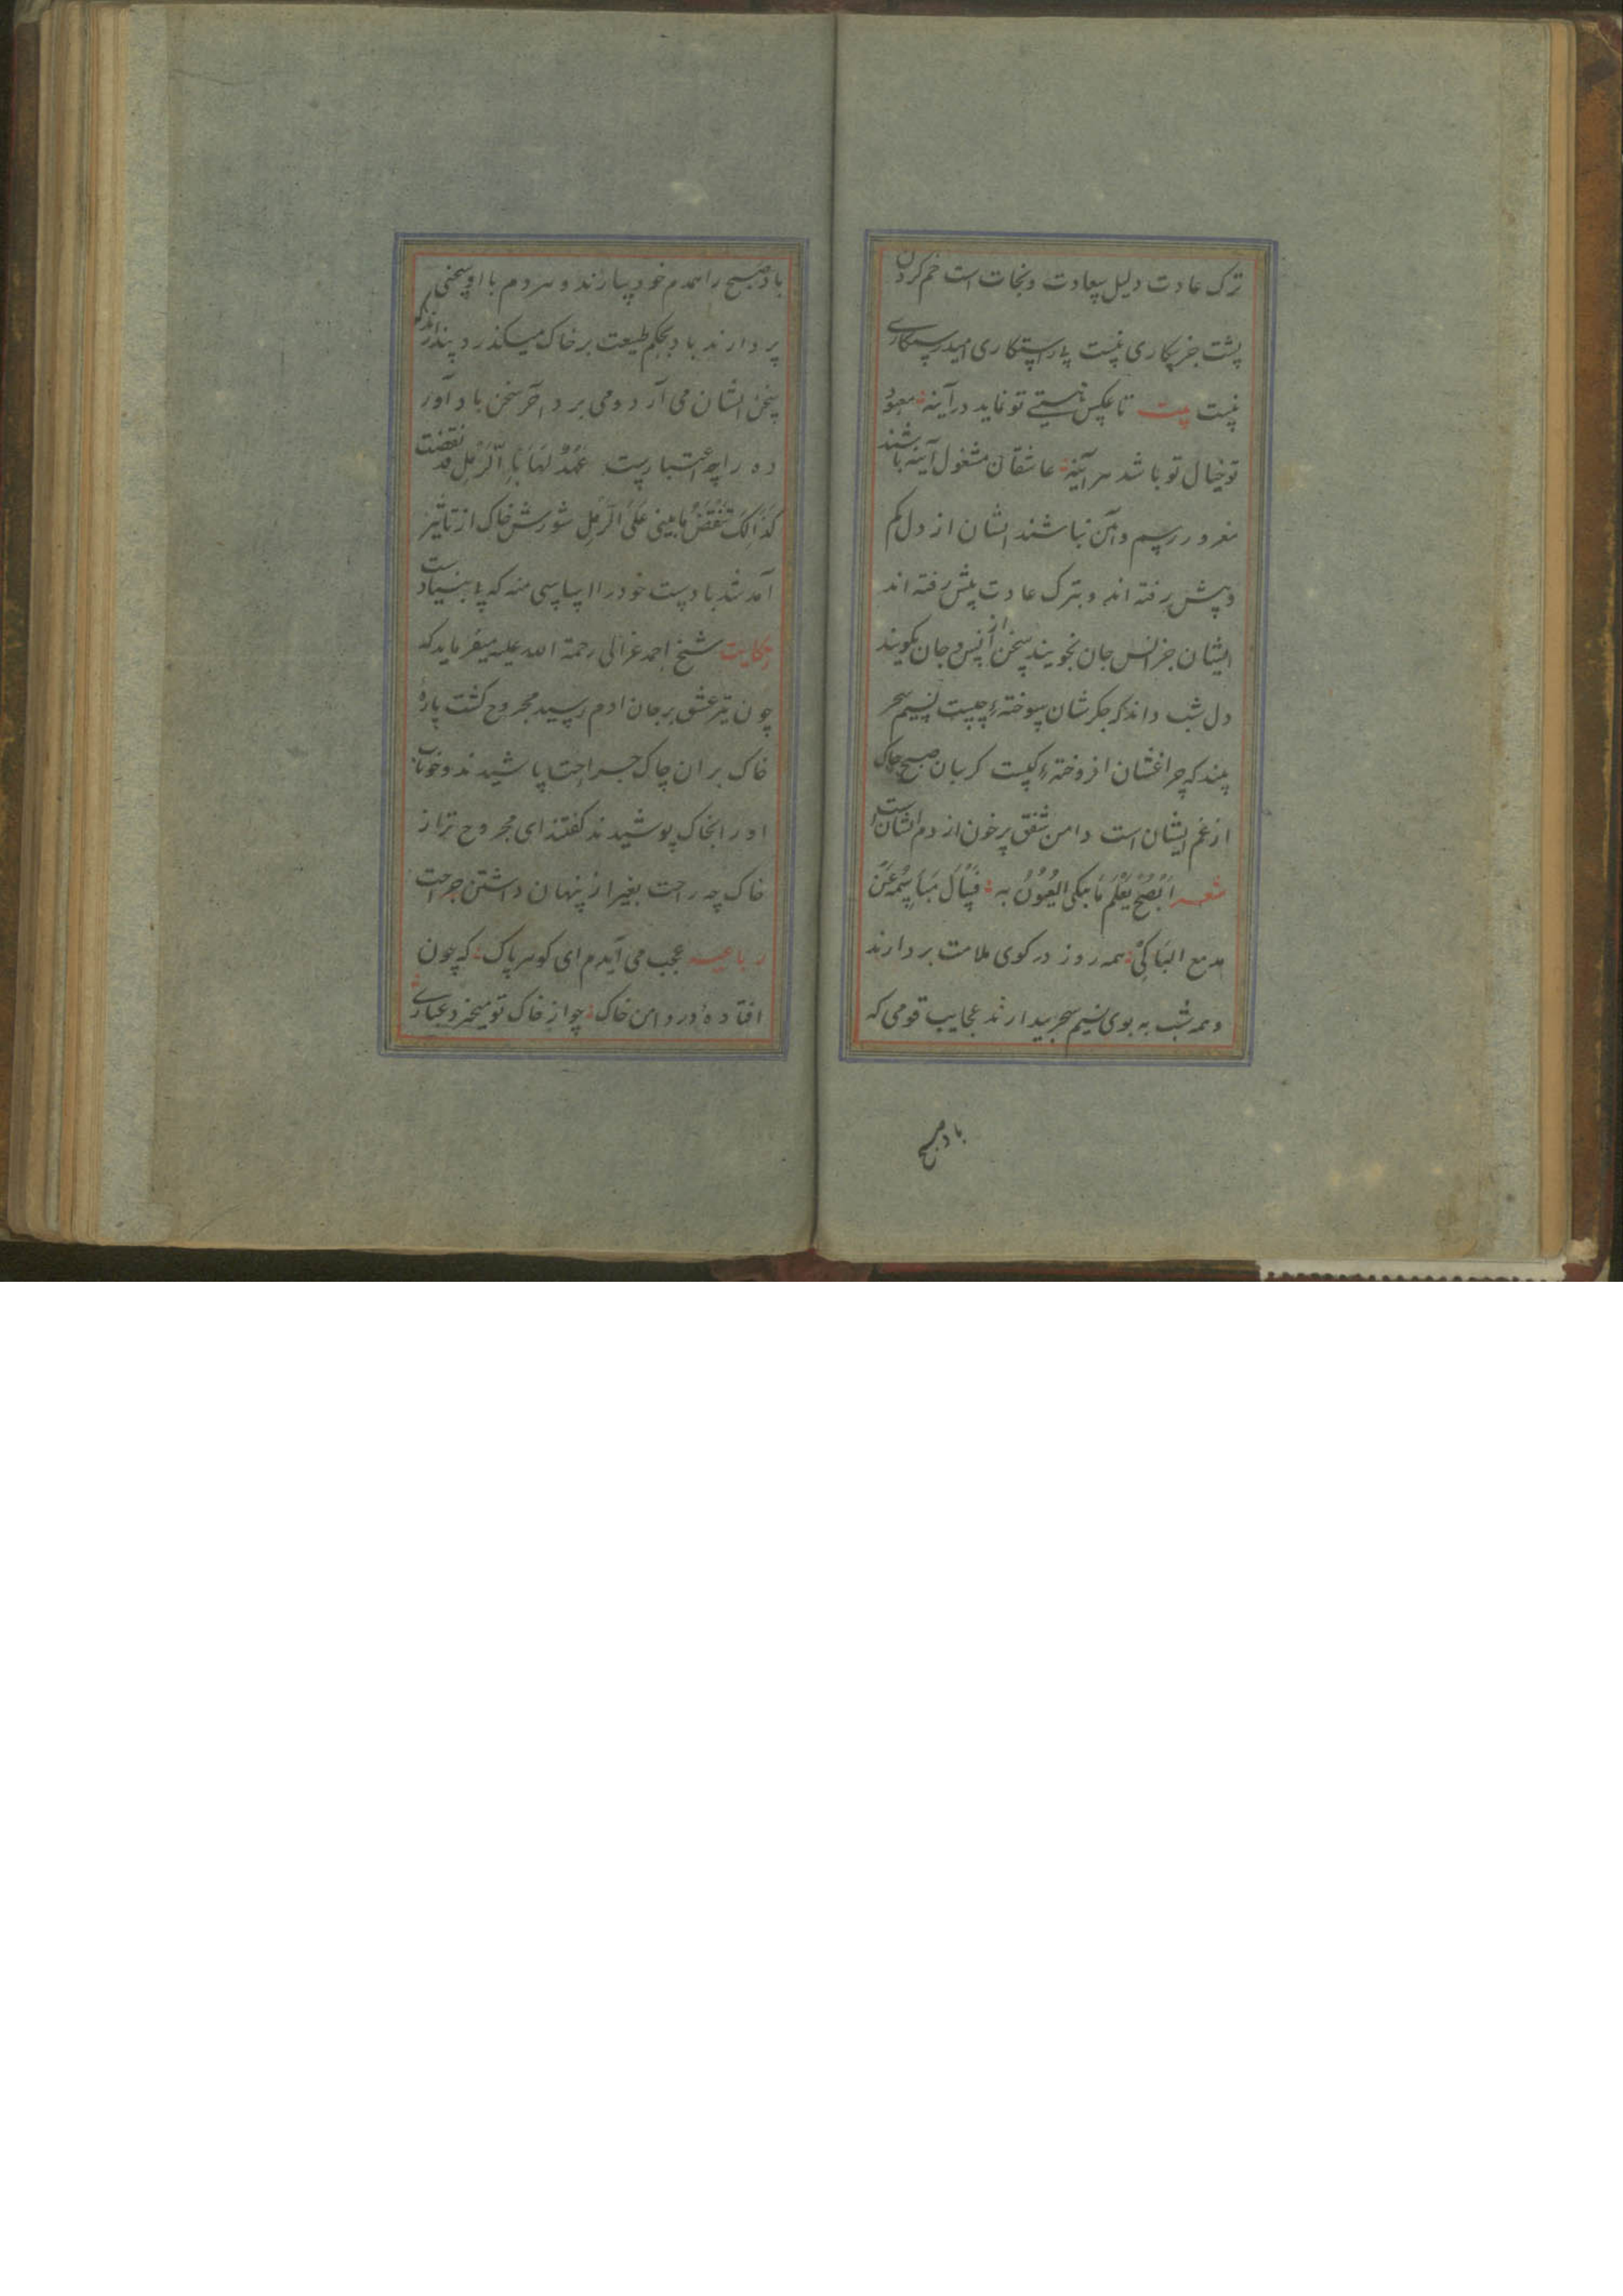 ترک عادت دلیل سعادت و نجات است خم کردن
پشت جز بیکاری نیست با راستکاری امید رستگاری
نیست بیت تا عکس هستی تو نماید در آینه معبود
تو خیال تو باشد هر آینه عاشقان مشغول آینه باشند
مغرور رسم و آیین نباشند ایشان از دل کم
و پیش رفته اند و بترک عادت پیش رفته اند
ایشان جز انس جان نجویند سخن از انس و جان نگویند
دل شب داند که جگرشان سوخته چیست نسیم سحر
بیند که چراغشان افروخته کیست گریبان صبح چاک
از غم ایشان است دامن شفق پرخون از دم ایشان است
شعر الصبح یعلم ما یبکی العیون به
مدمع الباکی همه روز در کوی ملامت بردارند
و همه شب به بوی نسیم سحر بیدارند عجایب قومی که
باد صبح
باد صبح را همدم خود پندارند و هر دم با او سخنی
پردازند باد بحکم طبیعت بر خاک میگذرد پندارند که
سخن ایشان می آرد و می برد آخر سخن باد آور
ده را چه اعتبارست عهود لها بالرمل قد نقضت
کذالک تنقض ما یبنی علی الرمل شورش خاک از تاثیر
آمد شد بادست خود را اساسی منه که بی بنیادست
حکایت شیخ احمد غزالی رحمة الله علیه میفرماید که
چون تیر عشق بر جان ادم رسید مجروح گشت پارهٔ
خاک بر ان چاک جراحت پاشیدند و خوناب
او را بخاک پوشیدند گفتند ای مجروح تر از
خاک چه راحت بغیر از پنهان داشتن جراحت
رباعیه عجب می آیدم ای گوهر پاک که چون
افتاده در دامن خاک چو از خاک تو میخیزد غباری